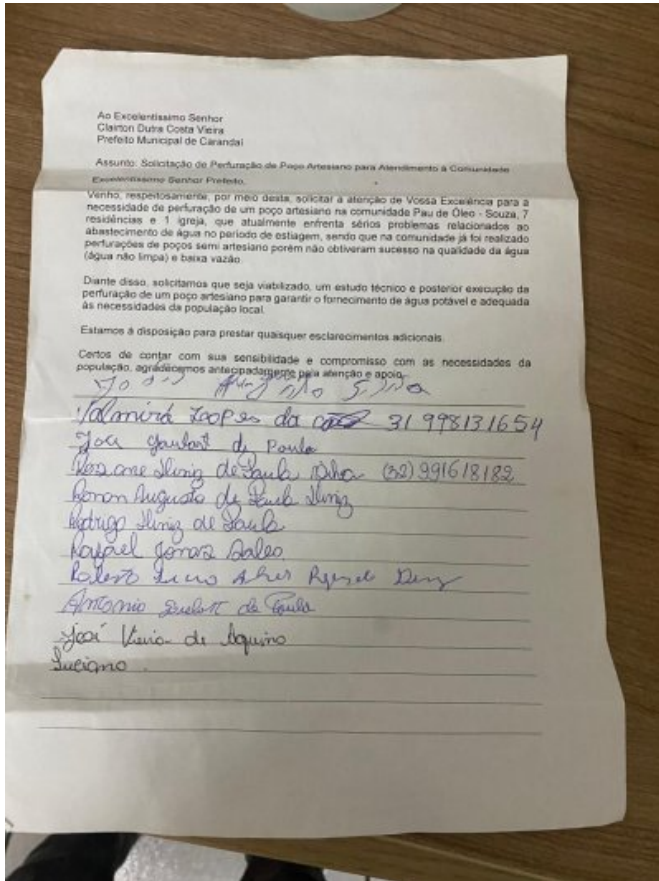 Ao Excelentíssimo Senhor
Clairton Dutra Costa Vieira
Prefeito Municipal de Carandaí
Assunto: Solicitação de Perfuração de Poço Artesiano para Atendimento à Comunidade
Excelentíssimo Senhor Prefeito,
Venho, respeitosamente, por meio desta, solicitar a atenção de Vossa Excelência para a
necessidade de perfuração de um poço artesiano na comunidade Pau de Óleo - Souza, 7
residências e 1 igreja, que atualmente enfrenta sérios problemas relacionados ao
abastecimento de água no período de estiagem, sendo que na comunidade já foi realizado
perfurações de poços semi artesiano porém não obtiveram sucesso na qualidade da água
(água não limpa) e baixa vazão.
Diante disso, solicitamos que seja viabilizado, um estudo técnico e posterior execução da
perfuração de um poço artesiano para garantir o fornecimento de água potável e adequada
às necessidades da população local.
Estamos à disposição para prestar quaisquer esclarecimentos adicionais.
Certos de contar com sua sensibilidade e compromisso com as necessidades da
população, agradecemos antecipadamente pela atenção e apoio.
Valmira Loopes da 31 998131654
de Paula
de Paula (32) 991618182
Augusto de Paula
Rodrigo de Paula
Rafael Sales
Roberto Alves
Antonio de Paula
José Vieira de Aquino
Luciano.